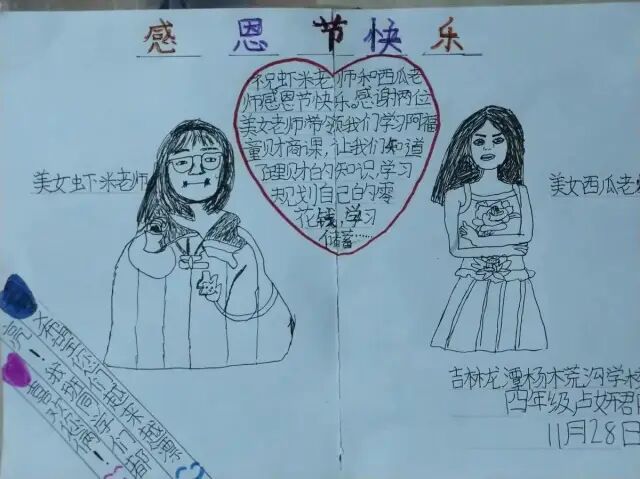 感恩节快乐
祝虾米老师和西瓜老
师感恩节快乐。感谢两位
美女老师带领我们学习阿福
童财商课，让我们知道
理财的知识，学习
规划自己的零
花钱，学习
储蓄……
美女虾米老师
美女西瓜老
希望您们越来越漂
亮！我们同学们都
喜欢你们！
吉林龙潭杨木荒沟学校
四年级卢妍君
11月28日